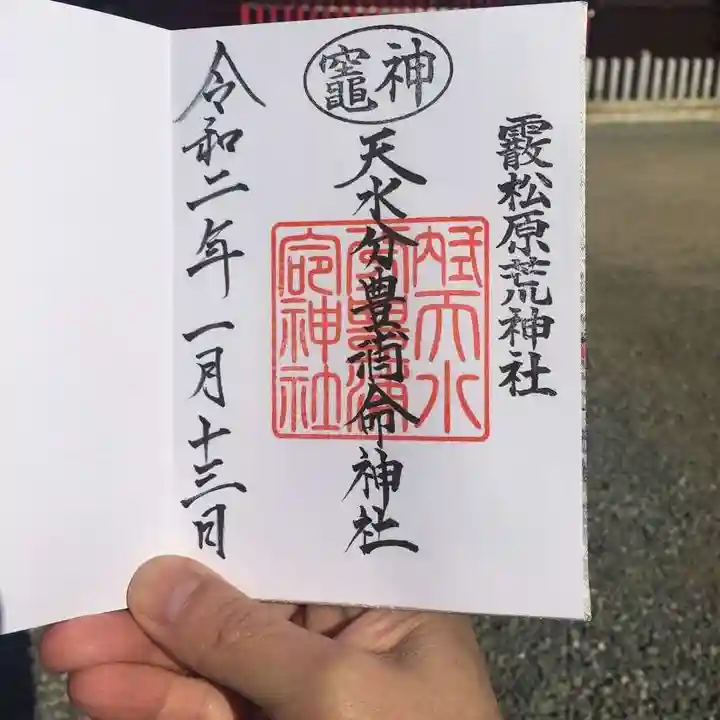 霰松原荒神社
竈神
天水分豊浦命神社
天水
命神社
令和二年一月十三日